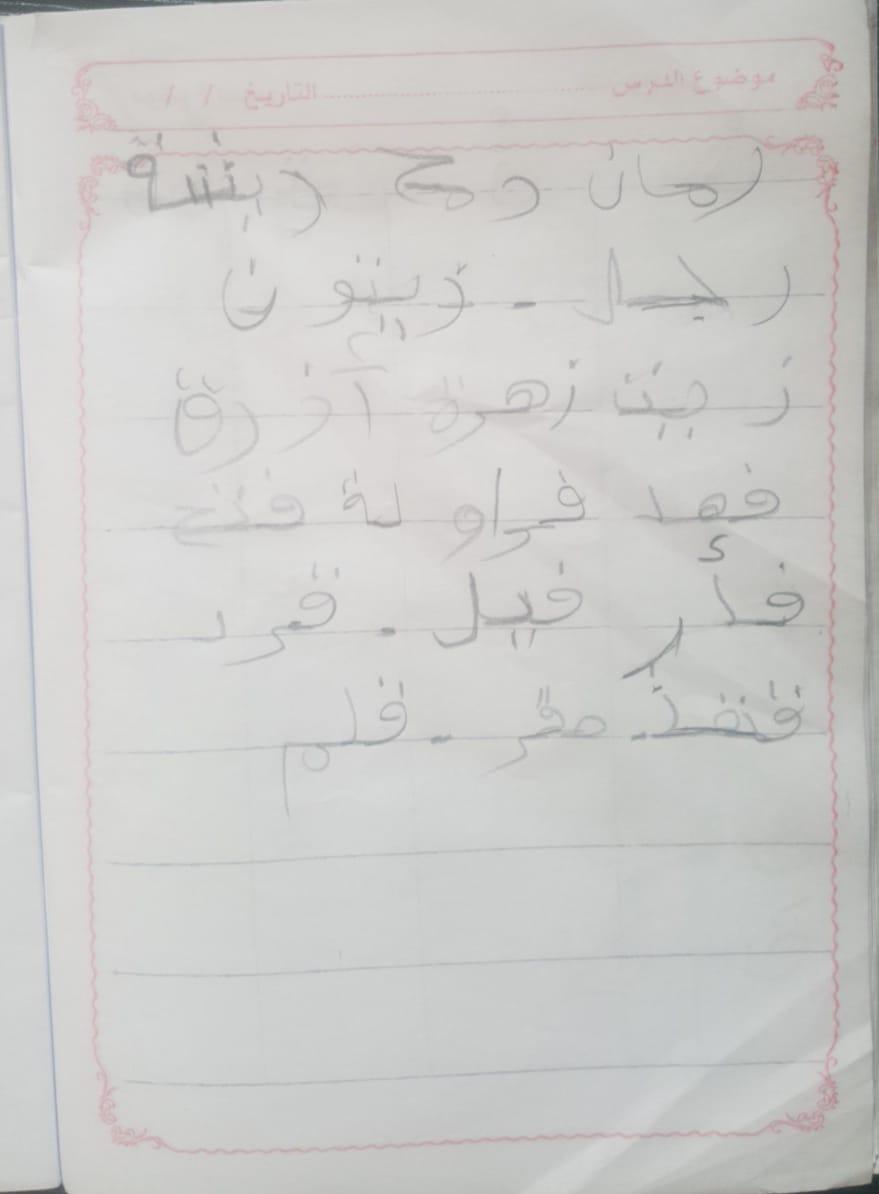 موضوع الدرس ........................ التاريخ / /
رمان رمح ريشة
رجل - زيتون
زيت زهرة أزرق
فهد فراولة فتح
فأر فيل - قرد
قنفذ - صقر - قلم